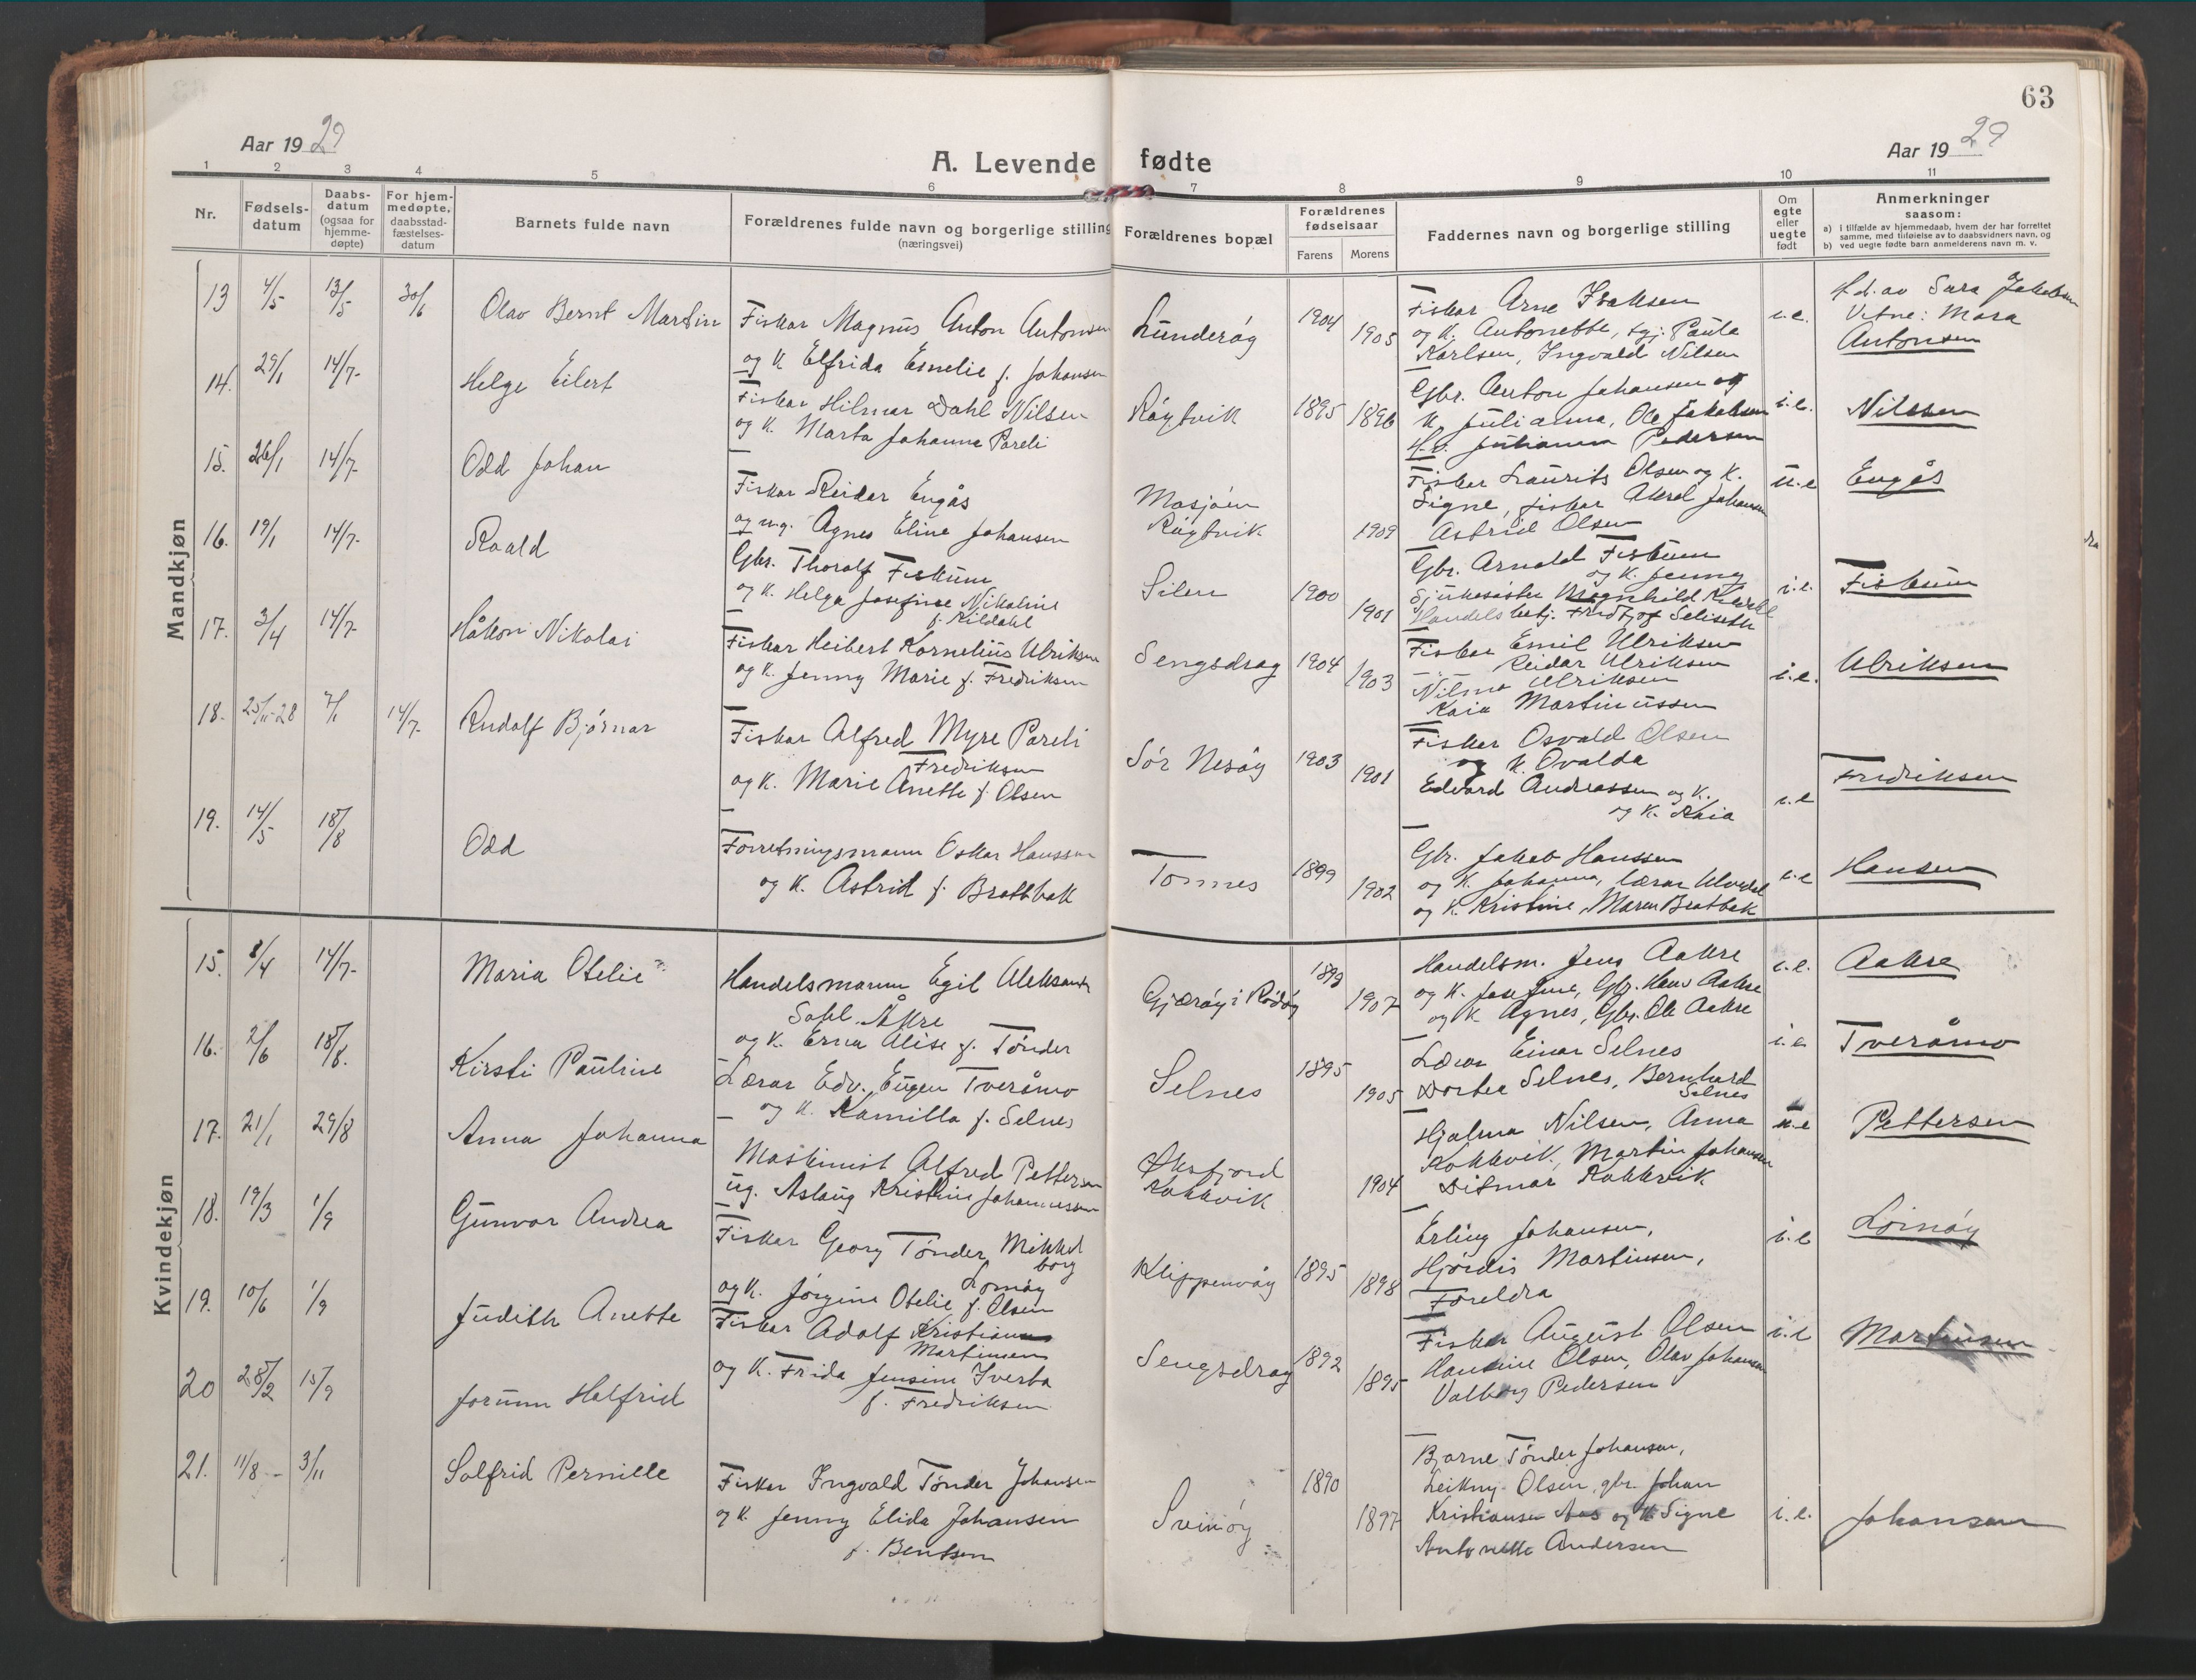 63
Aar 1929
A. Levende fødte
Aar 1929
1 2 3 4 5 6 7 8 9 10 11
Nr.
Fødsels-
datum
Daabs-
datum
(ogsaa for
hjemme-
døpte)
For hjem-
medøpte,
daabsstad-
fæstelses-
datum
Barnets fulde navn
Forældrenes fulde navn og borgerlige stilling
(næringsvei)
Forældrenes bopæl
Forældrenes
fødselsaar
Farens Morens
Faddernes navn og borgerlige stilling
Om
egte
eller
uegte
født
Anmerkninger
saasom:
a) i tilfælde av hjemmedaab, hvem der har forrettet
samme, med tilføielse av to daabsvidners navn, og
b) ved uegte fødte barn anmelderens navn m. v.
Mandkjøn
13 4/5 13/5 30/6 Olav Bernt Martin
Fiskar Magnus Anton Antonsen
og K. Elfrida Emelie f. Johansen
Lunderøy 1904 1905
Fiskar Arne Isaksen
og K. Antonette, Paula
Karlsen, Ingvald Nilsen
i.e.
h.d. av Sara Jakobsen
Vitne: Mara
Antonsen
14. 29/1 14/7- Helge Eilert
Fiskar Hilmar Dahl Nilsen
og K. Marta Johanna Pareli
Røytvik 1895 1896
Gbr. Anton Johansen og
K. Julianna, Ole Jakobsen
Julianna Pedersen
i.e. Nilssen
15. 26/1 14/7- Odd Johan
Fiskar Reidar Engås
og ug. Agnes Eline Johansen
Mosjøen
Røytvik 1909
Fiskar Laurits Olsen og K.
Signe, fiskar Aksel Johansen
Astrid Olsen
u.e Engås
16. 19/1 14/7- Roald
Gbr. Thoralf Fiskum
og K. Helga Josefine Nikoline
f. Kildahl
Silen 1900 1901
Gbr. Arnold Fiskum
og K. Jenny
Sjukesøster Magnhild
Handelsbetj. Fridtjof Seliseth
i.e. Fiskum
17. 3/4 14/7- Håkon Nikolai
Fiskar Heibert Kornelius Ulriksen
og K. Jenny Marie f. Fredriksen
Sengsdrag 1904 1903
Fiskar Emil Ulriksen
Reidar Ulriksen
Nilma Ulriksen
Kaia Martinussen
i.e. Ulriksen
18. 25/11-28 7/1 14/7- Rudolf Bjørnar
Fiskar Alfred Myre Pareli
Fredriksen
og K. Marie Anette f. Olsen
Sør Nesøy 1903 1901
Fiskar Osvald Olsen
og K. Ovalda
Edvard Andreassen og K.
og K. Kaia
i.e Fredriksen
19. 14/5 18/8 Odd
Forretningsmann Oskar Hanssen
og K. Astrid f. Brattbak
Tonnes 1899 1902
Gbr. Jakob Hanssen
og K. Johanna, lærar
og K. Kristine, Maren Bratbak
i.e Hansen
Kvindekjøn
15. 8/4 14/7- Maria Otelie
Handelsmann Egil Aleksander
Sofl. Åkre
og K. Erna Alise f. Tønder
Gjerøy i Rødøy 1899 1907
Handelsm. Jens Aakre
og K. Josefine, Gbr. Hans Aakre
og K. Agnes, Gbr. Ole Aakre
i.e. Aakre
16. 2/6 18/8. Kirsti Pauline
Lærar Edv. Eugen Tveråmo
og K. Kamilla f. Selnes
Selnes 1895 1905
Lærar Einar Selnes
Dortea Selnes, Bernhard
Selnes
i.e Tveråmo
17. 21/1 29/8 Anna Johanna
Maskinist Alfred Pettersen
ug. Aslaug Kristine Johannessen
Øksfjord
Kokkvik 1904
Hjalma Nilsen, Anna
Kokkvik, Martin Johansen
Ditmar Kokkvik
u.e Pettersen
18. 19/3 1/9 Gunvor Andrea
Fiskar Georg Tønder Mikkel
borg
Lornøy
og K. Jørgine Otelie f. Olsen
Klippenvåg 1895 1898
Erling Johansen,
Hjørdis Martinsen,
Foreldra
i.e Lornøy
19. 10/6 1/9 Judith Anette
Fiskar Adolf Kristian
Martinsen
og K. Frida Jensine Iverta
f. Fredriksen
Sengsdrag 1892 1895
Fiskar August Olsen
Hansine Olsen, Olav Johansen
Valborg Pedersen
i.e Martinsen
20 28/2 15/9 Jorunn Halfrid
21. 11/8- 3/11 Solfrid Pernille
Fiskar Ingvald Tønder Johansen
og K. Jenny Elida Johansen
f. Bentsen
Svinøy 1890 1897
Bjarne Tønder Johansen,
Leikny Olsen, gbr. Johan
Kristiansen Aas og K. Signe
Antonette Andersen
i.e. Johansen